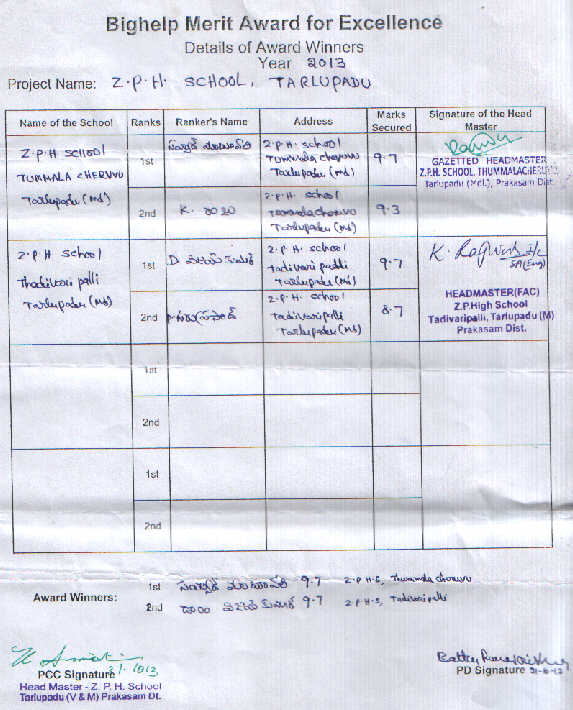 Bighelp Merit Award for Excellence
Details of Award Winners
Year 2013
Project Name: Z.P.H. SCHOOL, TARLUPADU
Name of the School Ranks Ranker's Name Address Marks Secured Signature of the Head Master
Z.P.H SCHOOL
TUMMALA CHERUVU
Tarlupadu (Md)
1st
Z.P.H. School
Tummala cheruvu
Tarlupadu (Md)
9.7
GAZETTED HEADMASTER
Z.P.H. SCHOOL, THUMMALACHERUVU
Tarlupadu (Md.), Prakasam Dist.
2nd
Z.P.H. School
Tummala cheruvu
Tarlupadu (Md)
9.3
Z.P.H School
Thadivari palli
Tarlupadu (Md)
1st
Z.P.H. School
Tadivari palli
Tarlupadu (Md)
9.7
HEADMASTER(FAC)
Z.P.High School
Tadivaripalli, Tarlupadu (M)
Prakasam Dist.
2nd
Z.P.H. School
Tadivaripalli
Tarlupadu (Md)
8.7
1st
2nd
1st
2nd
Award Winners:
1st 9.7 Z.P.H.S, Tummala cheruvu
2nd 9.7 Z.P.H.S, Tadivaripalli
PCC Signature
Head Master - Z. P. H. School
Tarlupadu (V & M) Prakasam Dt.
PD Signature